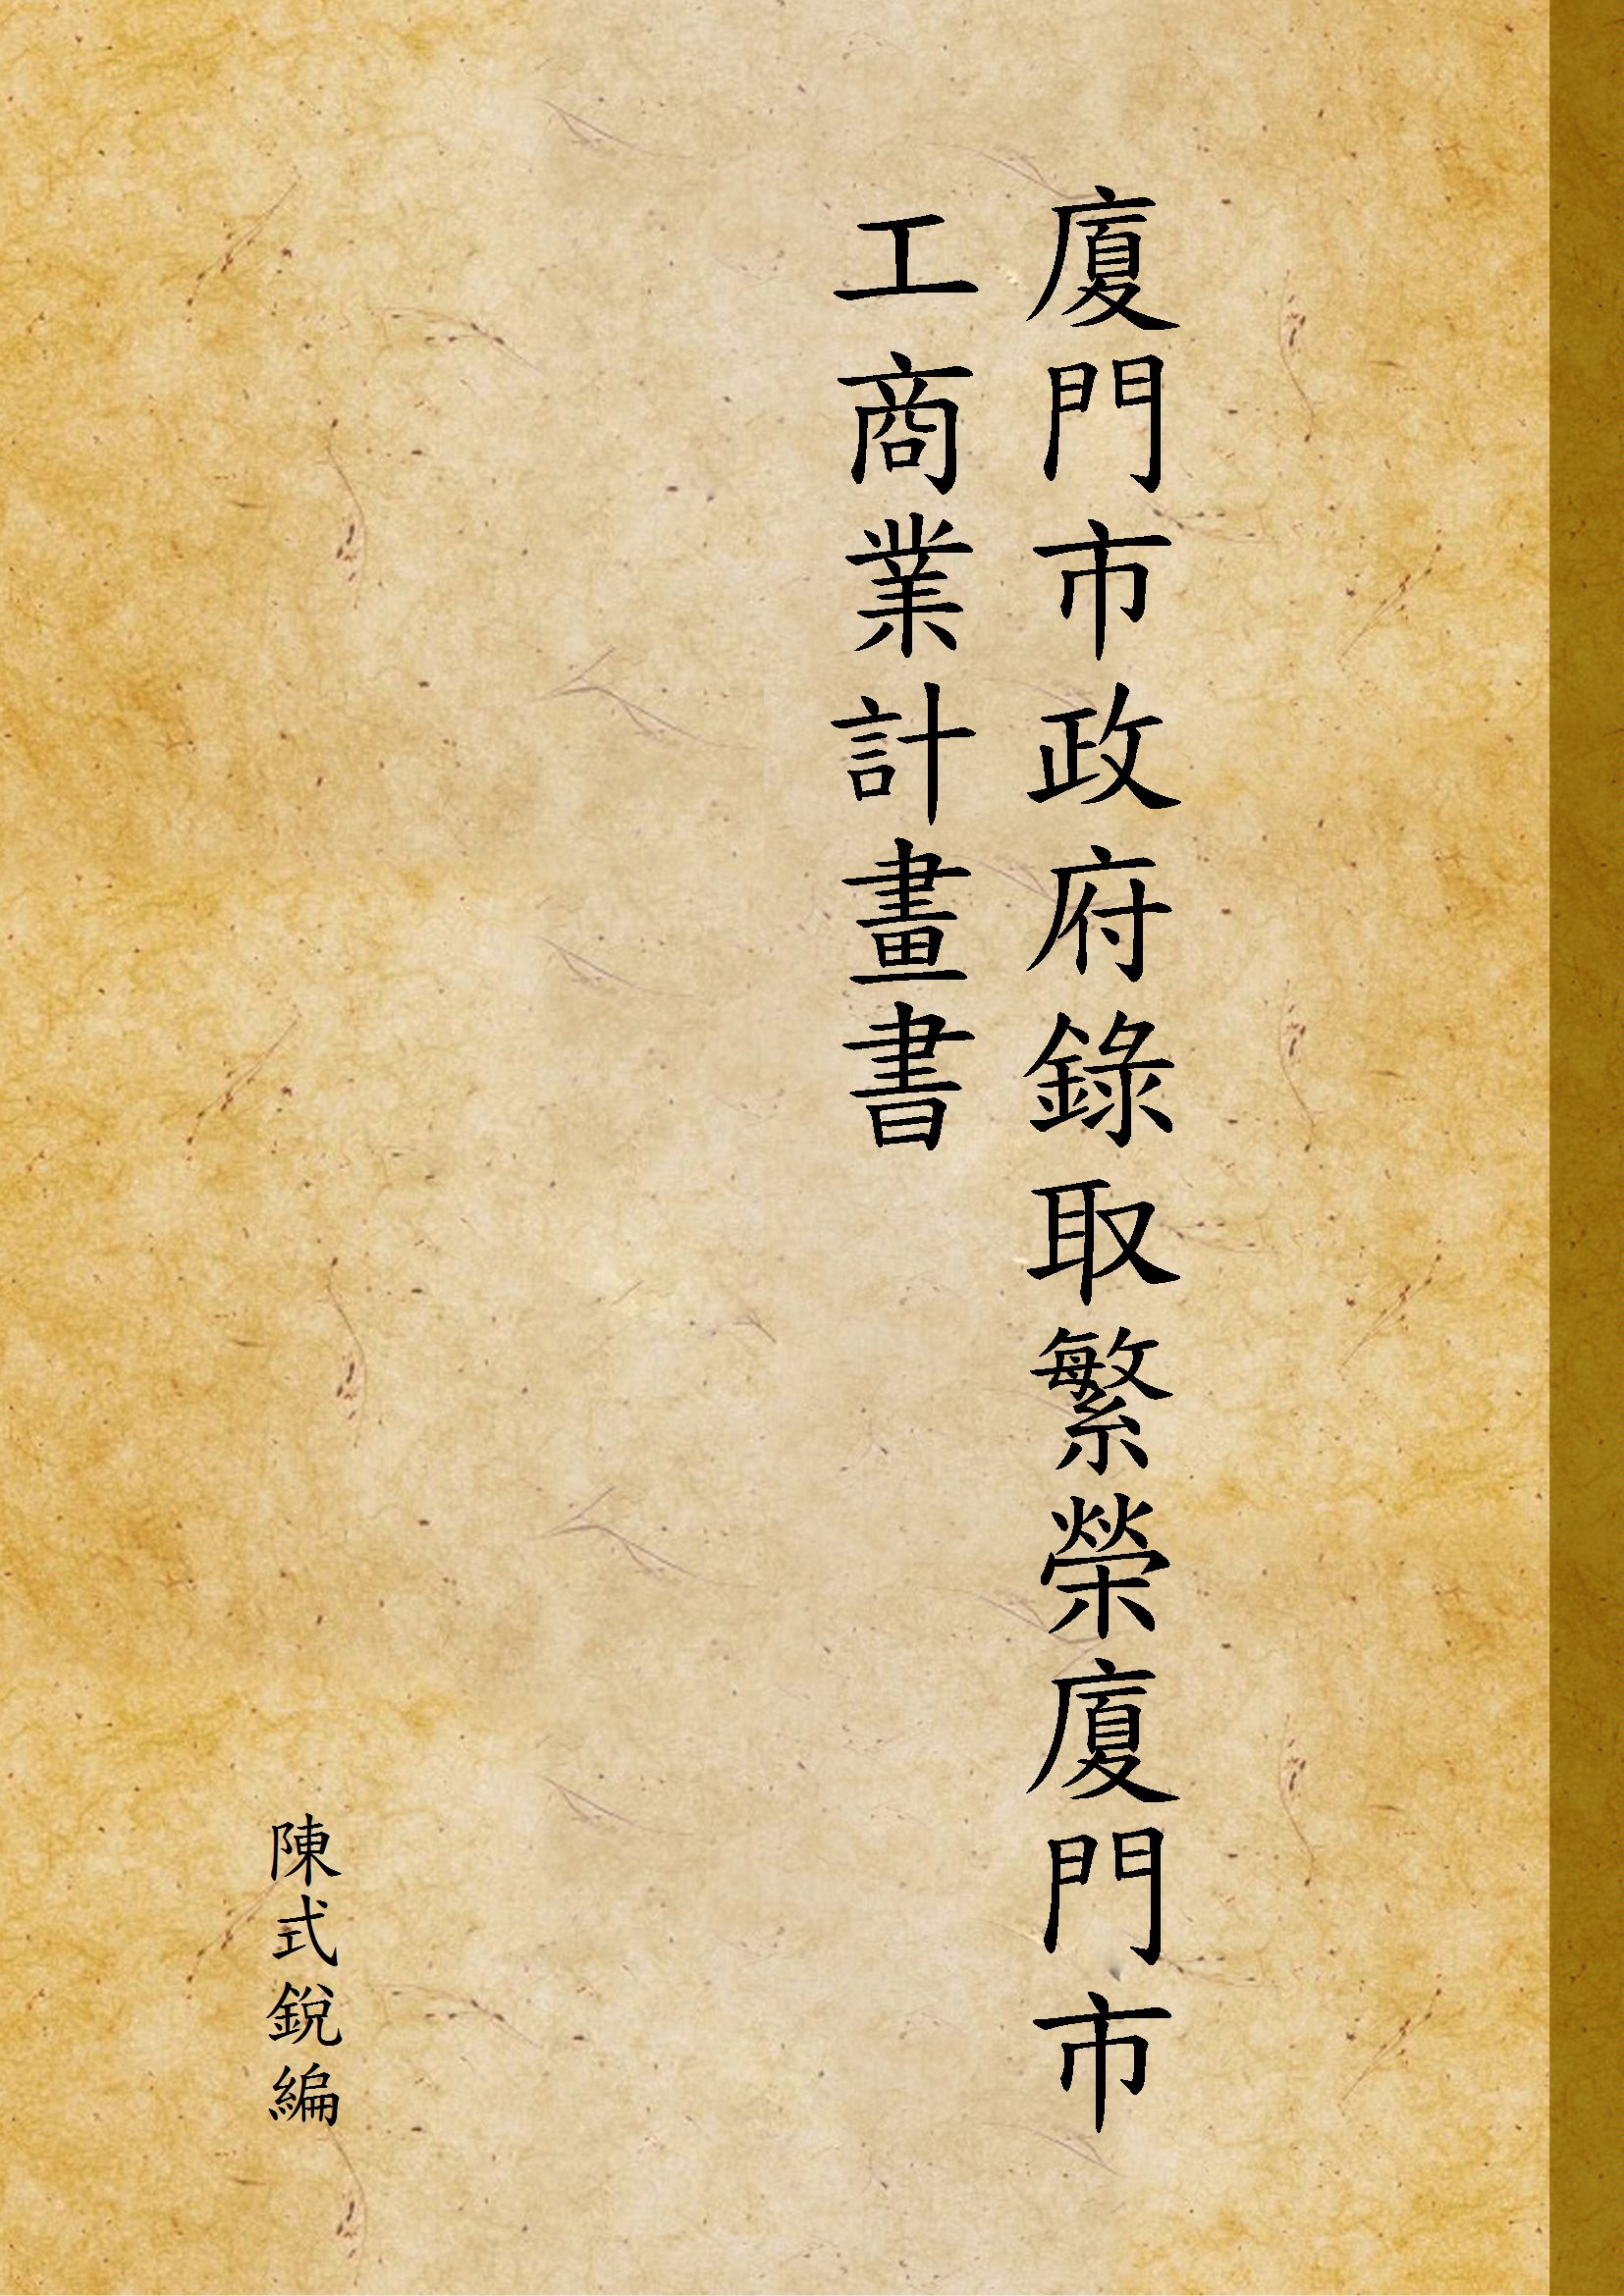 廈門市政府錄取繁榮廈門市
工商業計畫書
陳式銳編